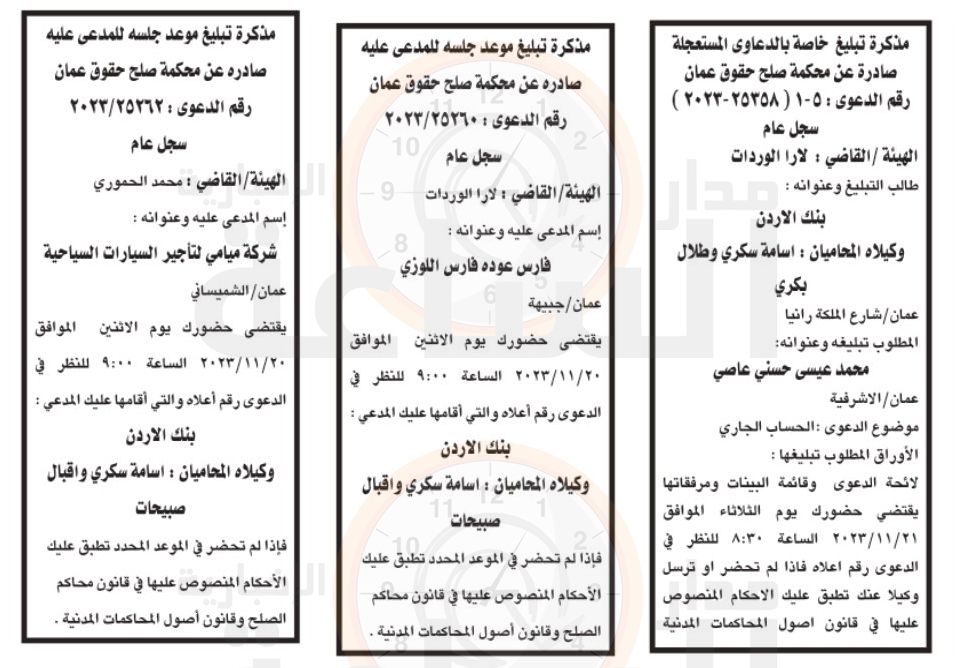 مذكرة تبليغ خاصة بالدعاوى المستعجلة
صادرة عن محكمة صلح حقوق عمان
رقم الدعوى : ٥-١ ( ٢٥٣٥٨-٢٠٢٣ )
سجل عام
الهيئة /القاضي : لارا الوردات
طالب التبليغ وعنوانه :
بنك الاردن
وكيلاه المحاميان : اسامة سكري وطلال
بكري
عمان/شارع الملكة رانيا
المطلوب تبليغه وعنوانه:
محمد عيسى حسني عاصي
عمان/الاشرفية
موضوع الدعوى :الحساب الجاري
الأوراق المطلوب تبليغها :
لائحة الدعوى وقائمة البينات ومرفقاتها
يقتضي حضورك يوم الثلاثاء الموافق
٢٠٢٣/١١/٢١ الساعة ٨:٣٠ للنظر في
الدعوى رقم اعلاه فاذا لم تحضر او ترسل
وكيلا عنك تطبق عليك الاحكام المنصوص
عليها في قانون اصول المحاكمات المدنية
مذكرة تبليغ موعد جلسه للمدعى عليه
صادره عن محكمة صلح حقوق عمان
رقم الدعوى : ٢٠٢٣/٢٥٢٦٠
سجل عام
الهيئة/القاضي : لارا الوردات
إسم المدعى عليه وعنوانه :
فارس عوده فارس اللوزي
عمان/جبيهة
يقتضى حضورك يوم الاثنين الموافق
٢٠٢٣/١١/٢٠ الساعة ٩:٠٠ للنظر في
الدعوى رقم أعلاه والتي أقامها عليك المدعي :
بنك الاردن
وكيلاه المحاميان : اسامة سكري واقبال
صبيحات
فإذا لم تحضر في الموعد المحدد تطبق عليك
الأحكام المنصوص عليها في قانون محاكم
الصلح وقانون أصول المحاكمات المدنية .
مذكرة تبليغ موعد جلسه للمدعى عليه
صادره عن محكمة صلح حقوق عمان
رقم الدعوى : ٢٠٢٣/٢٥٢٦٢
سجل عام
الهيئة/القاضي : محمد الحموري
إسم المدعى عليه وعنوانه :
شركة ميامي لتأجير السيارات السياحية
عمان/الشميساني
يقتضى حضورك يوم الاثنين الموافق
٢٠٢٣/١١/٢٠ الساعة ٩:٠٠ للنظر في
الدعوى رقم أعلاه والتي أقامها عليك المدعي :
بنك الاردن
وكيلاه المحاميان : اسامة سكري واقبال
صبيحات
فإذا لم تحضر في الموعد المحدد تطبق عليك
الأحكام المنصوص عليها في قانون محاكم
الصلح وقانون أصول المحاكمات المدنية .
مدار
الساعة
الاخبارية